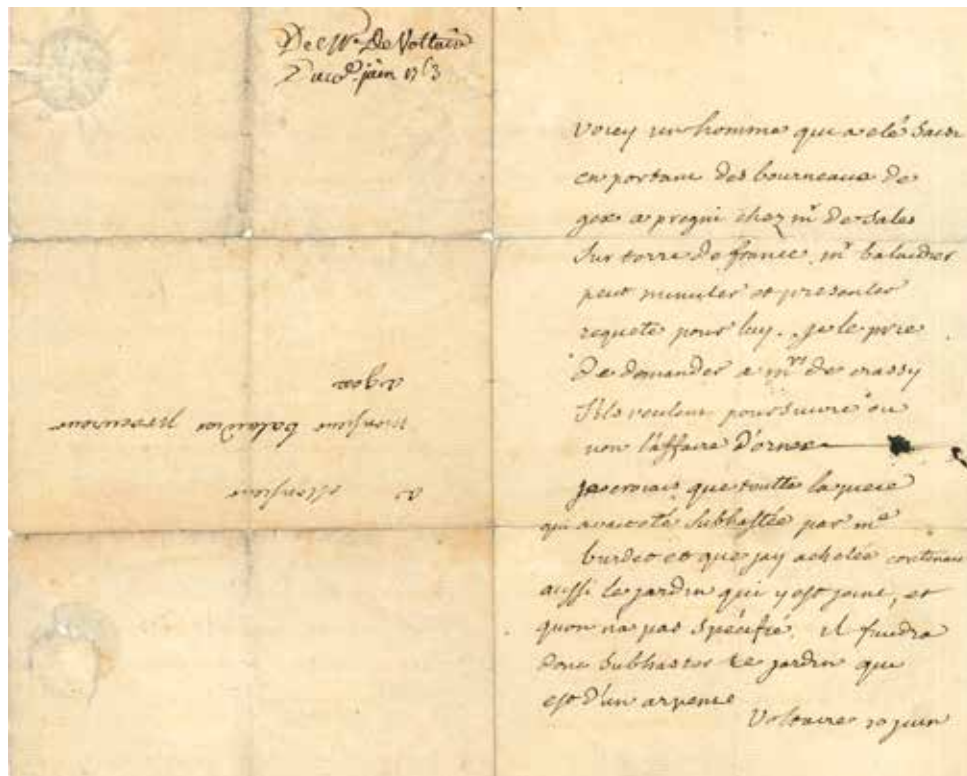 De Mr. De Voltaire
Du 20e. juin 1763
a Monsieur
monsieur balaidier procureur
a gex
voicy un homme qui a été saisi
en portant des bourneaux de
gex a pregni chez mr de sales
sur terre de france. mr balaidier
peut minuter et presenter
requete pour luy. je le prie
de demander a mrs de crassy
s'ils veulent poursuivre ou
non l'affaire d'ornex
je croiais que toutte la piece
qui avait eté subhastée par me
burdet et que jay achetée contenait
aussi le jardin qui y est joint, et
quon n'a pas specifié. il faudra
donc subhaster ce jardin qui
est d'un arpent
Voltaire 20 juin